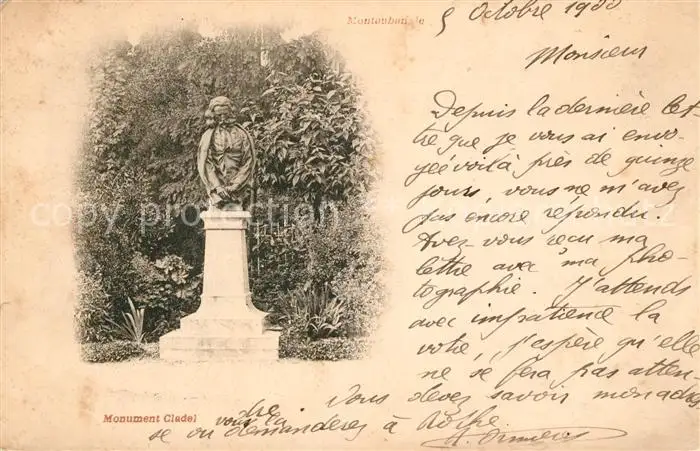 Montauban le
5 Octobre 1900
Monsieur
Depuis la dernière let-
tre que je vous ai envo-
yée voilà près de quinze
jours, vous ne m'avez
pas encore répondu.
Avez-vous reçu ma
lettre avec ma pho-
tographie. J'attends
avec impatience la
votre, j'espère qu'elle
ne se fera pas atten-
dre Vous devez savoir mon adres
se ou vous la demanderez à Rothe.
Monument Cladel
copyright